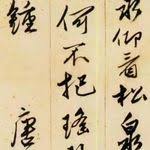 仰看松泉
何不把瑤
鍾 唐